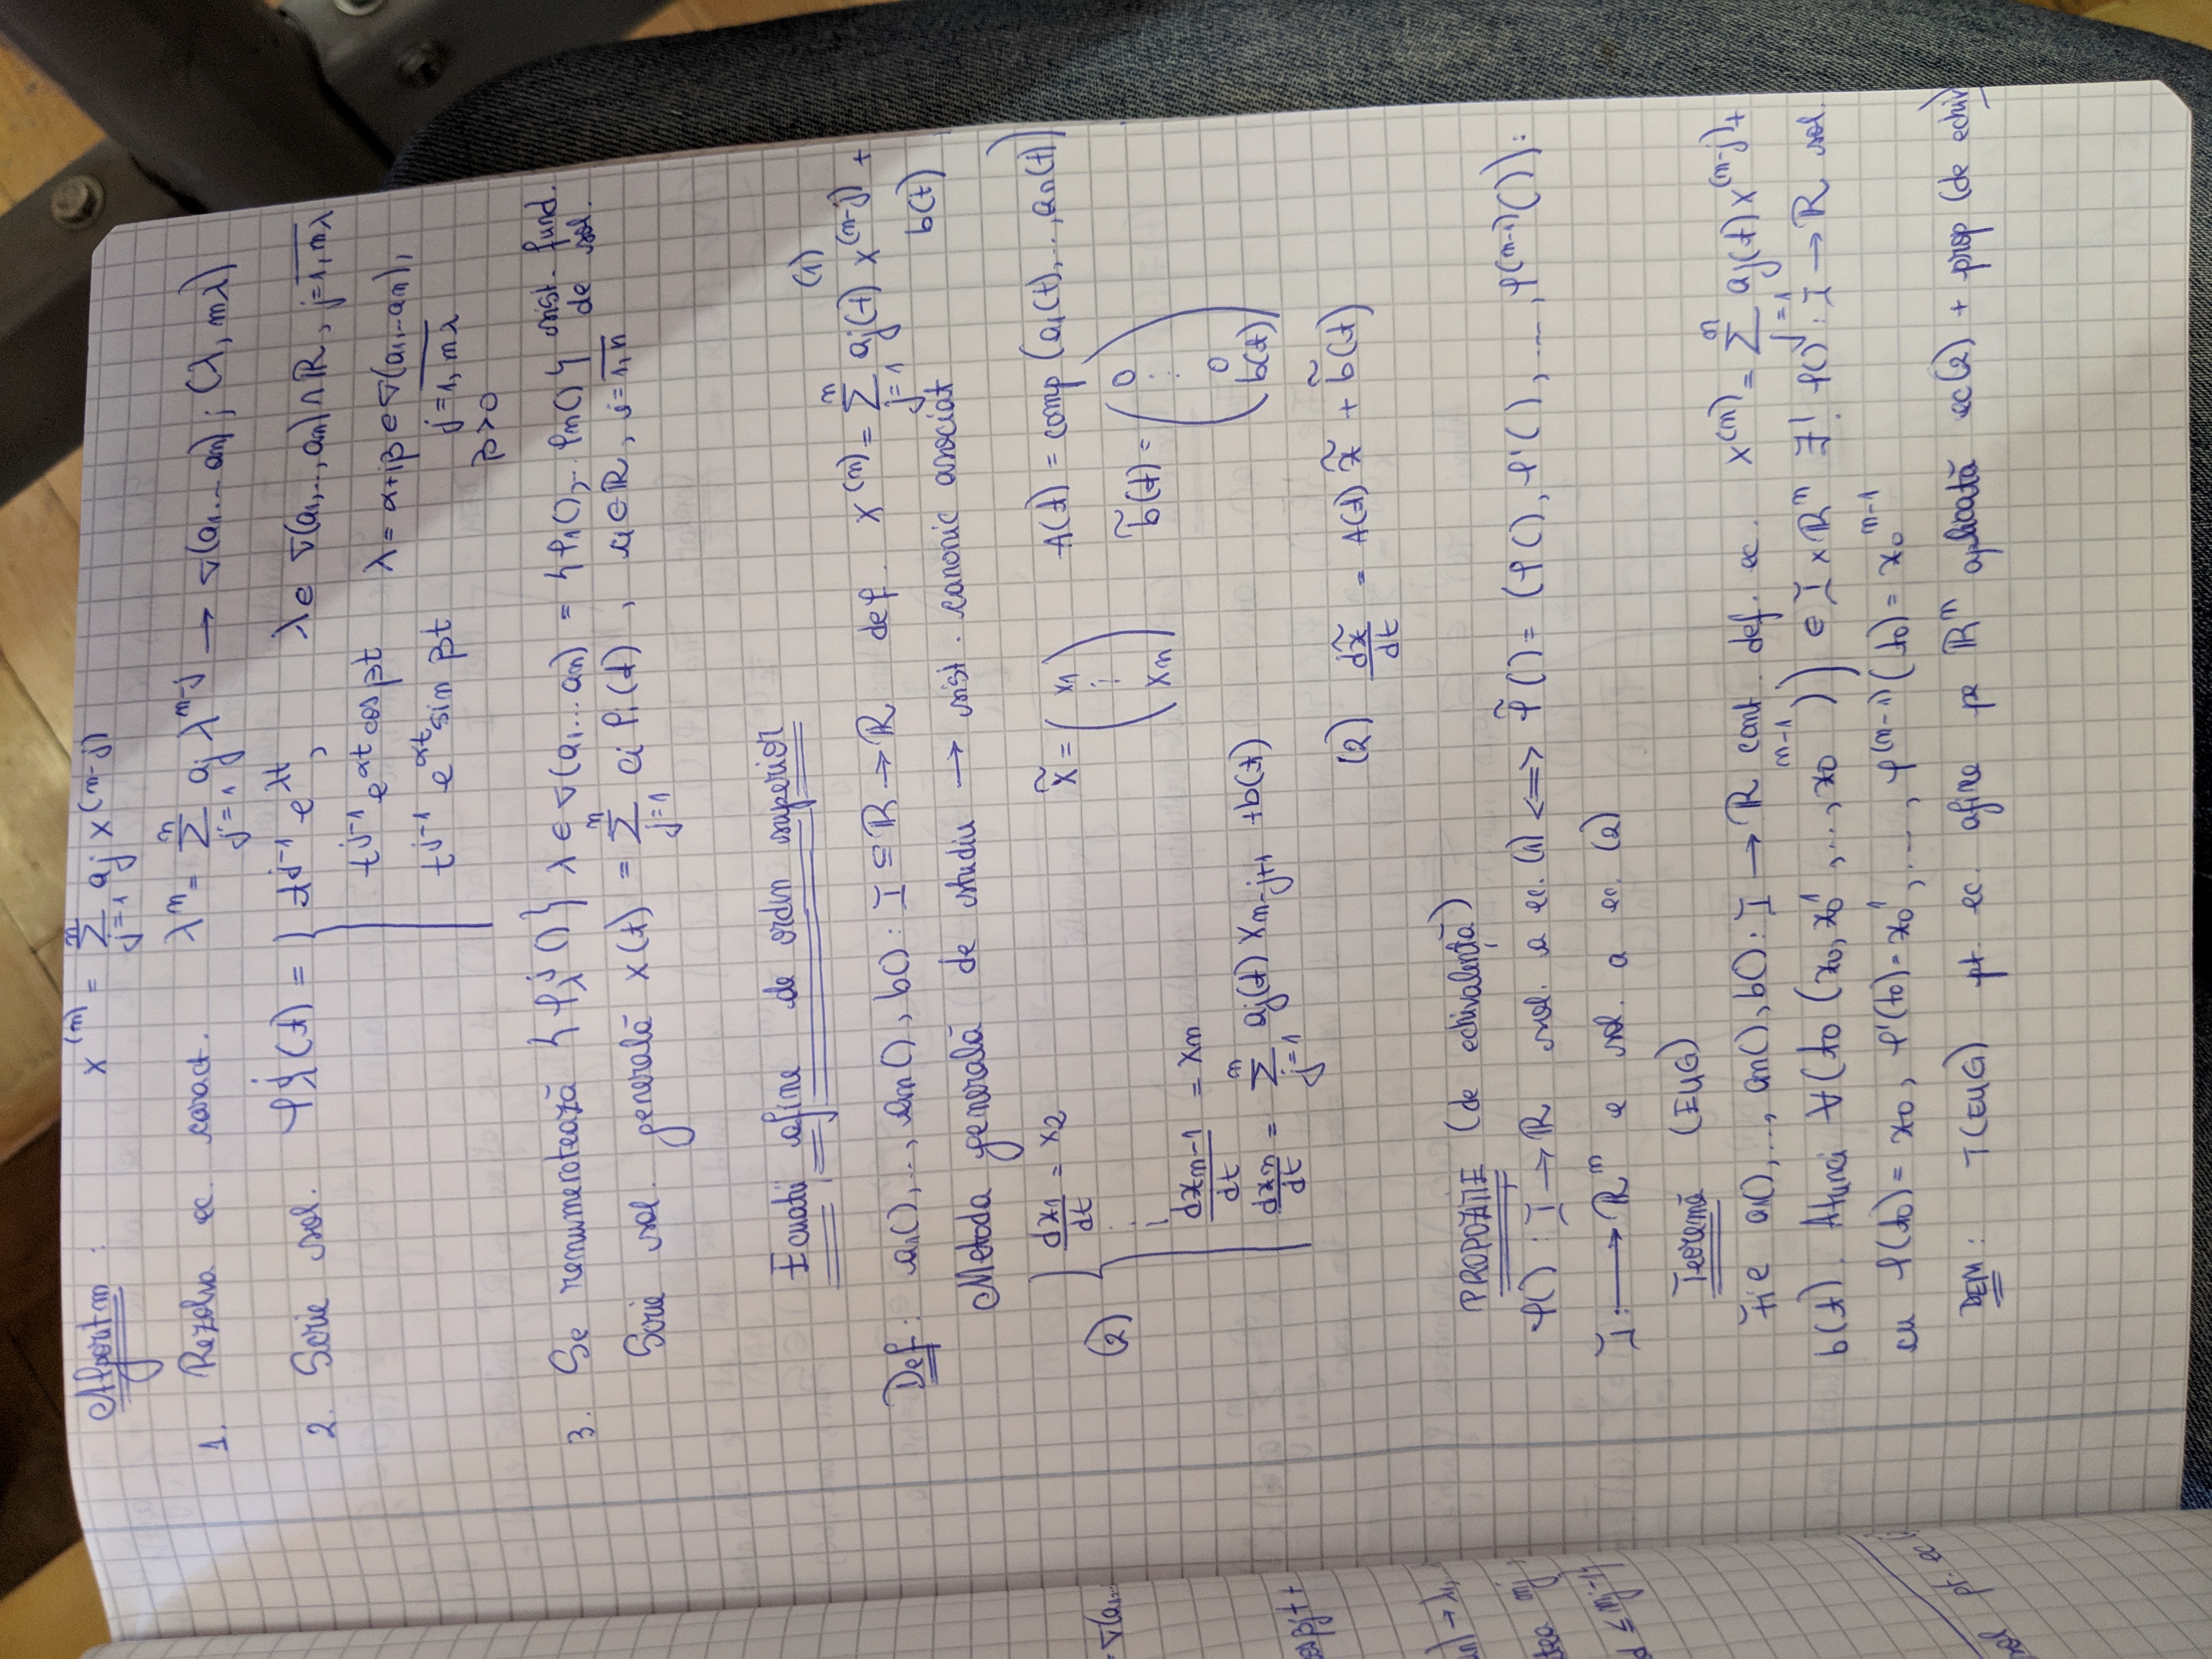 Algoritm : x^(n) = Σ_{j=1}^{n} aj x^(n-j)
1. Rezolva ec. caract. λ^n = Σ_{j=1}^{n} aj λ^{n-j} → σ(a1...an); (λ, mλ)
2. Scrie sol. φ_λ^j(t) = { t^{j-1} e^{λt}, λ∈ σ(a1,..,an)∩ℝ, j=\overline{1,mλ}
t^{j-1} e^{αt} cos βt λ = α+iβ ∈ σ(a1,..an),
t^{j-1} e^{αt} sin βt j=\overline{1,mλ}
β>0
3. Se renumerotează {φ_λ^j()} λ∈σ(a1...an) = {φ1(),.. φn()} sist. fund. de sol.
Scrie sol. generală x(t) = Σ_{j=1}^{n} ci φi(t) , ci∈ℝ, i=\overline{1,n}
Ecuații afine de ordin superior
(1)
Def: a1(),..., an(), b() : I⊆ℝ→ℝ def. x^(n) = Σ_{j=1}^{n} aj(t) x^(n-j) +
b(t)
Metoda generală de studiu → sist. canonic asociat
(2) { dx1/dt = x2
⋮
dx_{n-1}/dt = xn
dxn/dt = Σ_{j=1}^{n} aj(t) x_{n-j+1} +b(t)
x̃ = (x1 ⋮ xn) A(t) = comp (a1(t),..,an(t))
b̃(t) = (0 ⋮ 0 b(t))
(2) dx̃/dt = A(t) x̃ + b̃(t)
PROPOZIȚIE (de echivalență)
φ() : I→ℝ sol. a ec. (1) <=> φ̃() = (φ(), φ'(), ..., φ^(n-1)()):
I→ℝ^n e sol. a ec. (2)
Teoremă (EUG)
Fie a1(),..., an(), b(): I → ℝ cont. def. ec. x^(n) = Σ_{j=1}^{n} aj(t) x^(n-j) +
b(t). Atunci ∀(t0 (x0, x0^1, ..., x0^{n-1})) ∈ I×ℝ^n ∃! φ(): I → ℝ sol.
cu φ(t0) = x0, φ'(t0) = x0^1, ..., φ^(n-1)(t0) = x0^{n-1}
DEM: T(EUG) pt. ec. afine pe ℝ^n aplicată ec(2) + prop (de echiv)